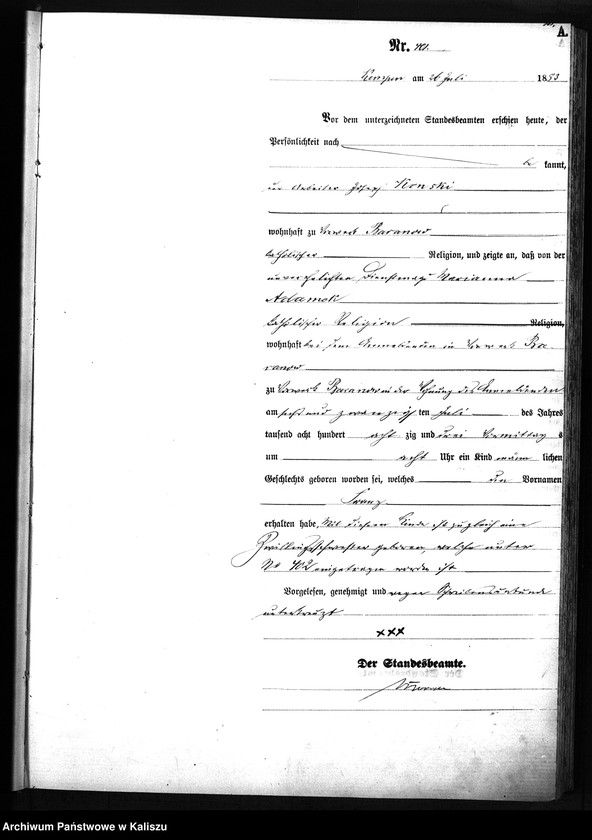 A.
Nr. 401.
Kempen am 26 Juli 1883
Vor dem unterzeichneten Standesbeamten erschien heute, der
Persönlichkeit nach
be kannt,
der Arbeiter Josef Konski
wohnhaft zu Vorwerk Baranow
katholischer Religion, und zeigte an, daß von der
unverehelichten Dienstmagd Marianna
Adamek
katholischer Religion Religion,
wohnhaft bei dem Anmeldenden in Vorwerk Ba
ranow
zu Vorwerk Baranow in der Wohnung des Anmeldenden
am sechs und zwanzig ten Juli des Jahres
tausend acht hundert acht zig und drei Vormittag s
um acht Uhr ein Kind männ lichen
Geschlechts geboren worden sei, welches den Vornamen
Franz
erhalten habe, Mit diesem Kinde ist zugleich eine
Zwillingsschwester geboren, welche unter
No 402 eingetragen worden ist
Vorgelesen, genehmigt und wegen Schreibensunkunde
unterkreuzt
xxx
Der Standesbeamte.
Archiwum Państwowe w Kaliszu